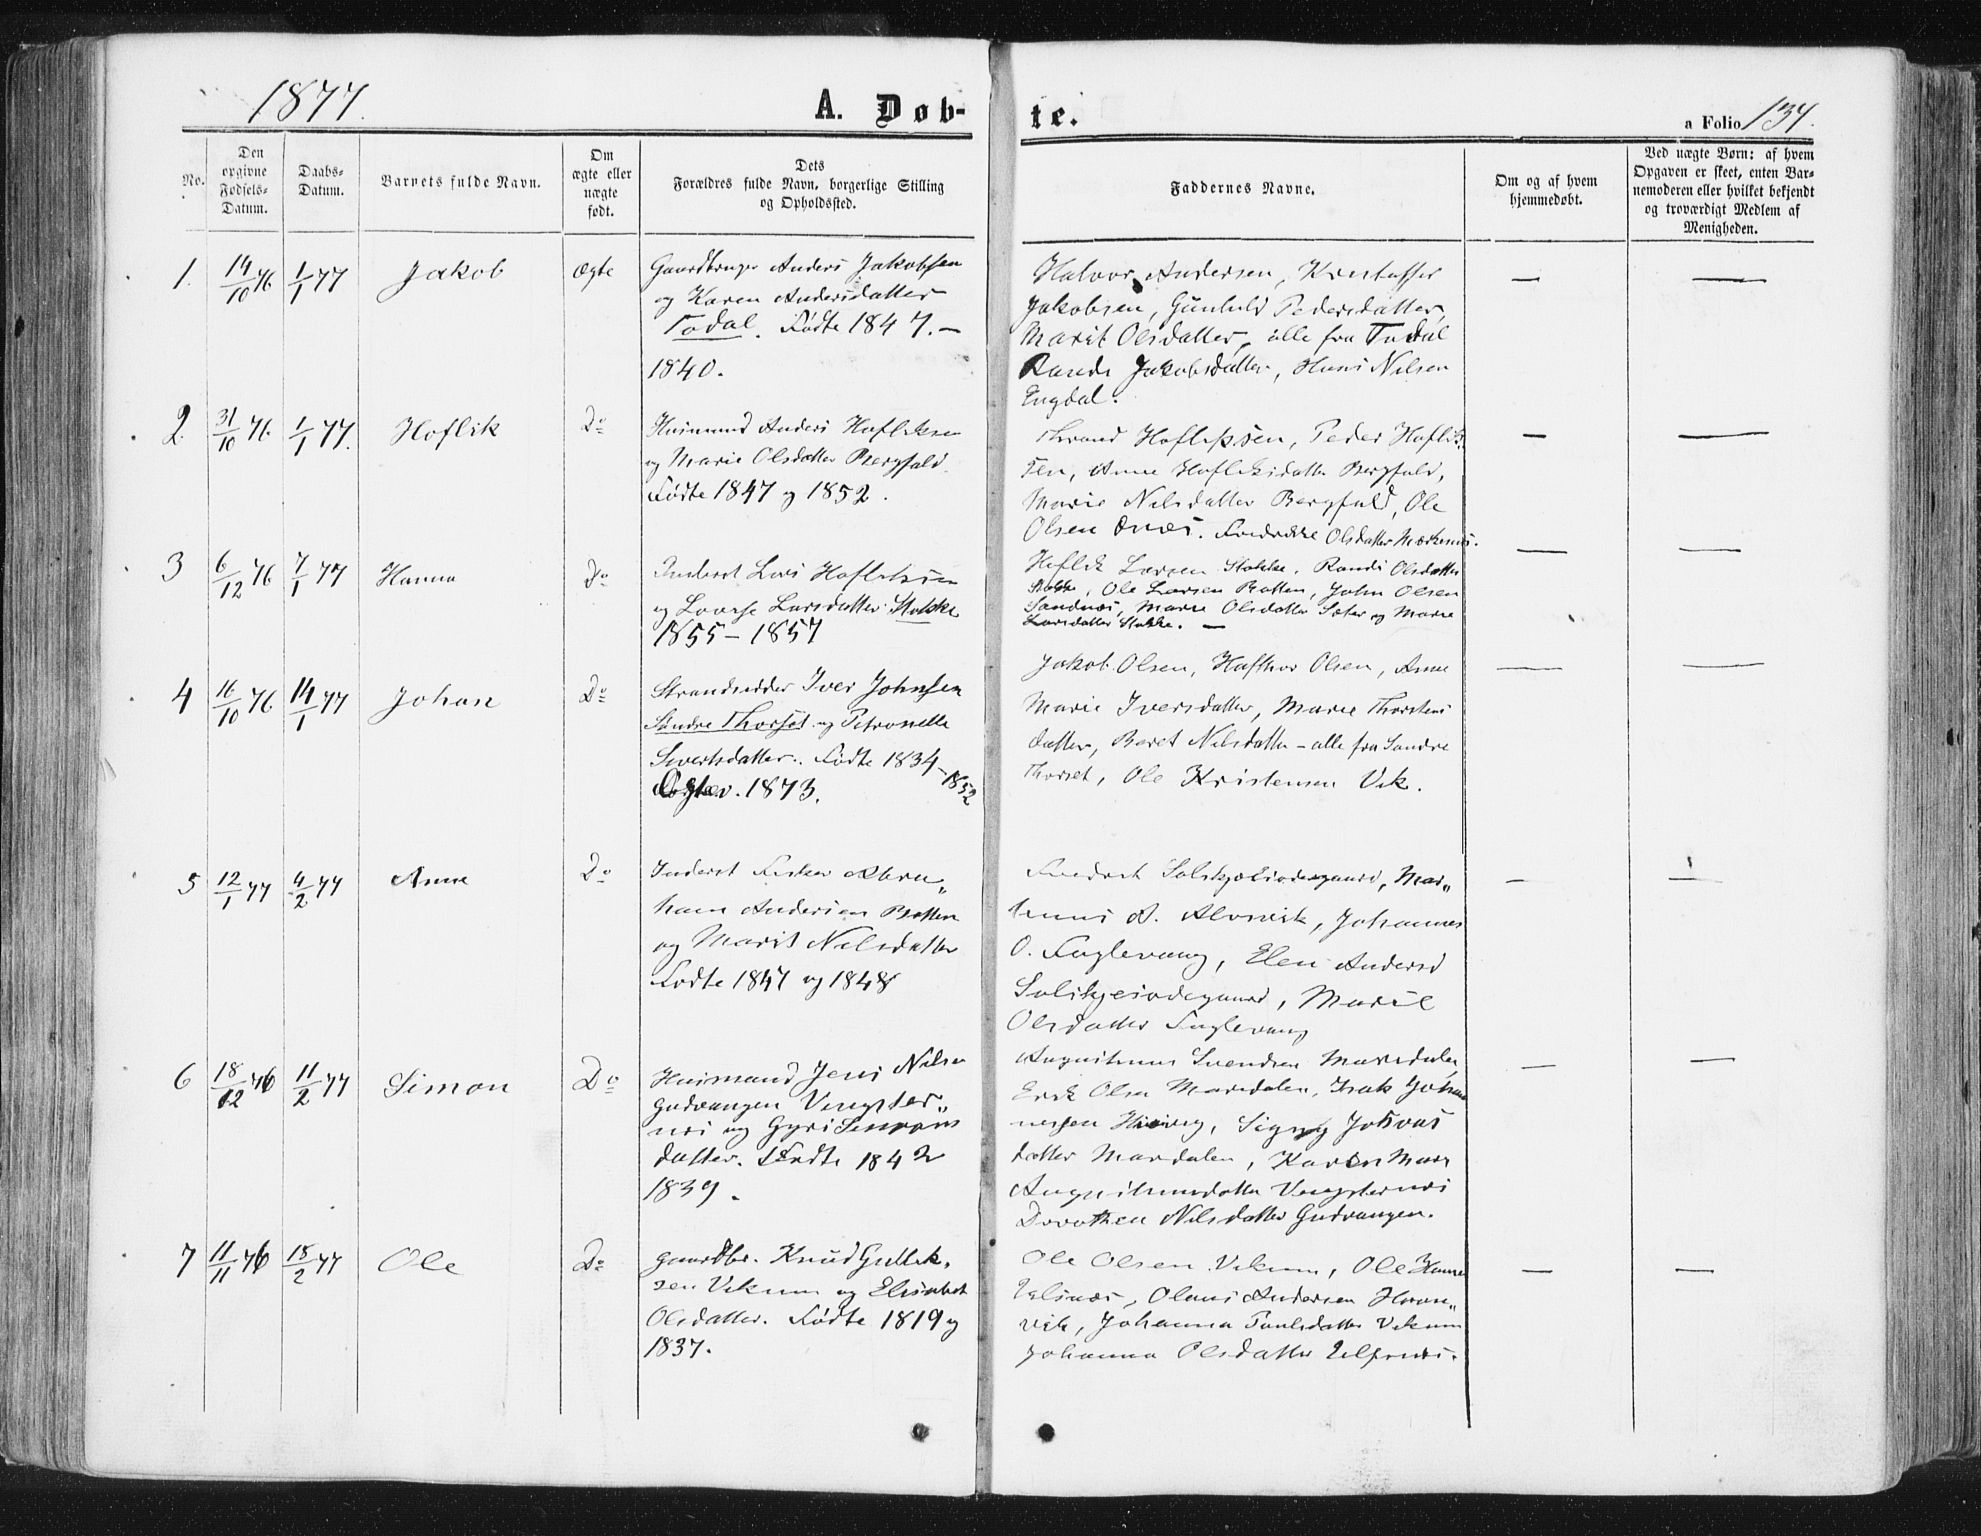 1877.
A. Døb-
te.
a Folio 134.
No.
Den
opgivne
Fødsels-
Datum.
Daabs-
Datum.
Barnets fulde Navn.
Om
ægte eller
uægte
født.
Dets
Forældres fulde Navn, borgerlige Stilling
og Opholdssted.
Faddernes Navne.
Om og af hvem
hjemmedøbt.
Ved uægte Børn: af hvem
Opgaven er skeet, enten Bar-
nemoderen eller hvilket bekjendt
og troværdigt Medlem af
Menigheden.
1. 14/10 76 1/1 77 Jakob Ægte
Gaardbruger Anders Jakobsen
og Karen Andersdatter
Todal. Fødte 1847. —
1840.
Halvor Andersen, Kristoffer
Jakobsen, Gunhild Pedersdatter,
Marit Olsdatter, alle fra Todal
Randi Jakobsdatter, Hans Nilsen
Engdal.
— —
2. 31/10 76. 1/1 77. Hoflik Do
Husmand Anders Hofliksen
og Marie Olsdatter Bergfald.
Fødte 1847 og 1852.
Thrond Hofliksen, Peder Hoflik-
sen, Anne Hofliksdatter Bergfald,
Marie Nilsdatter Bergfald, Ole
Olsen. Fredrikke Olsdatter
— —
3 6/12 76 7/1 77 Hanna Do
Inderst Lars Hofliksen
og Lovise Larsdatter Stokke
1855 – 1857
Hoflik Larsen Stokke. Randi Olsdatter
Stokke, Ole Larsen Ratten, John Olsen
Sandnes, Marie Olsdatter Sæter og Marie
Larsdatter Stokke. —
— —
4 16/10 76 14/1 77 Johan Do
Strandsidder Iver Johnsen
Søndre Thorset og Petronelle
Sivertsdatter. Fødte 1834 – 1852
Ægtev. 1873.
Jakob Olsen, Hafthor Olsen, Anne
Marie Iversdatter, Marie Thorstens
datter, Beret Nilsdatter – alle fra Søndre
Thorset, Ole Kristensen Vik.
— —
5 12/1 77 4/2 77 Anne Do
Inderst Fisker Abra„
ham Andersen Bratten
og Marit Nilsdatter
Fødte 1847 og 1848
Fredrik Solskjelsødegaard, Mar„
tinus A. Alvnvik, Johannes
O. Fuglevaag, Elen Andersd
Solskjelsødegaard, Marie
Olsdatter Fuglevaag
— —
6 18/12 76 11/2 77 Simon Do
Husmand Jens Nilsen
Gudvangen Vengster„
nes og Gyri Simons
datter. Fødte 1842
1839.
Augustinus Svendsen Mardalen,
Erik Olsen Mardalen, Isak Johan
nessen, Signy
datter Mardalen, Karen Marie
Augustinusdatter Vengsternes
Dorothea Nilsdatter Gudvangen.
— —
7 11/11 76 18/2 77 Ole Do
Gaardbr. Knud Gullik„
sen Vikum og Elisabet
Olsdatter. Fødte 1819 og
1837.
Ole Olsen Vikum, Ole Hansen
Ulfsnes, Olaus Andersen Hvam„
vik, Johanna Paulsdatter Vikum
Johanna Olsdatter Ulfsnes.
— —